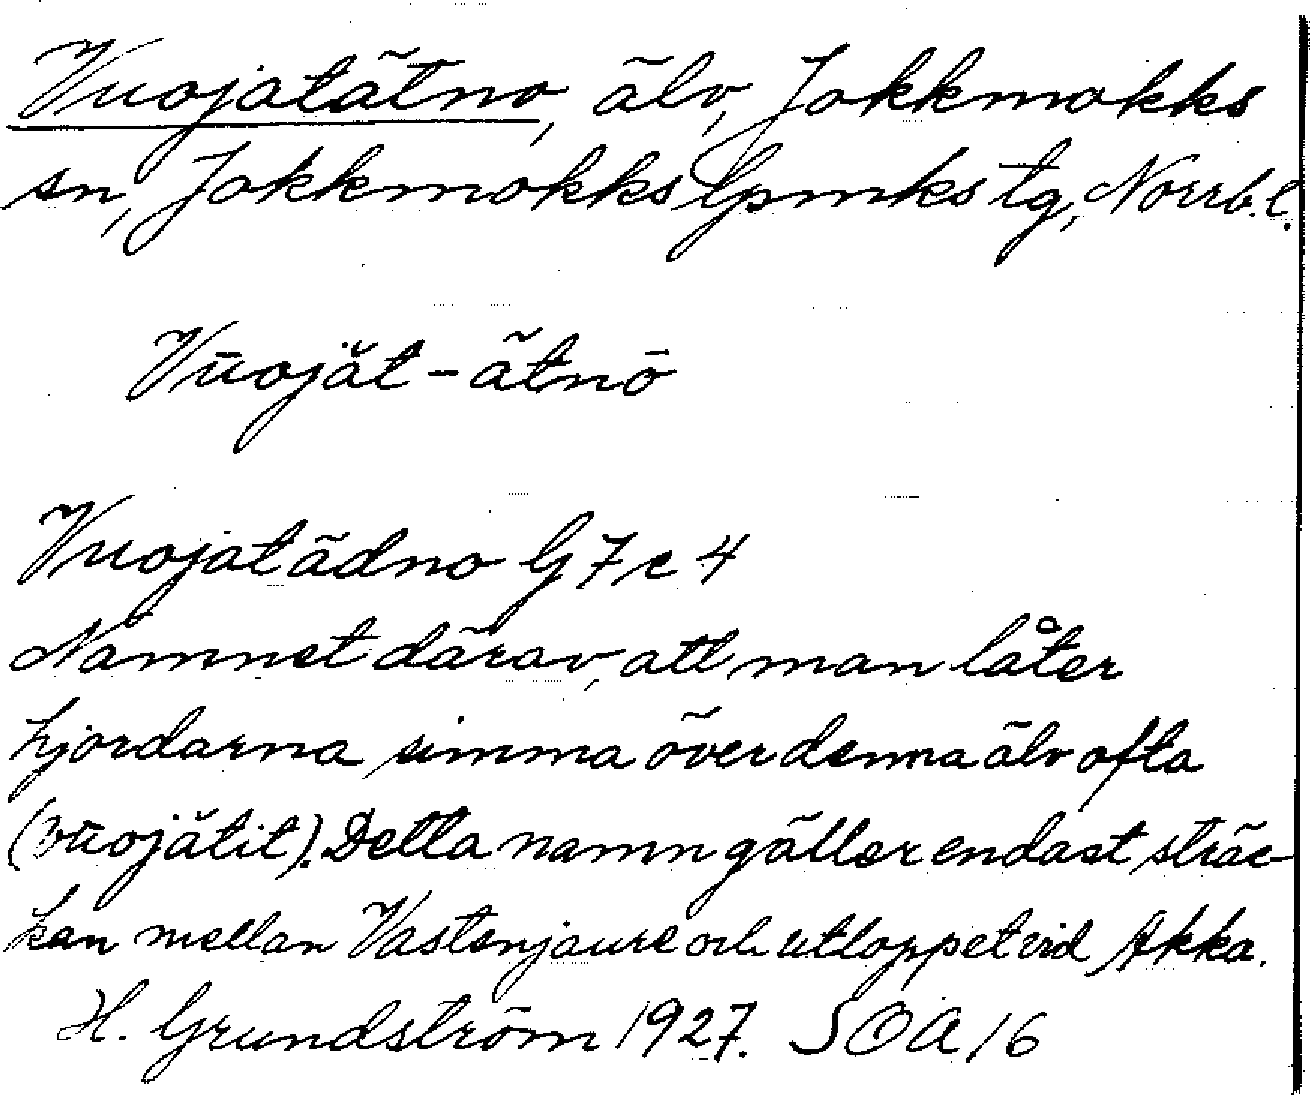 Vuojatätno, älv, Jokkmokks
sn, Jokkmokks lpmks tg, Norrb. l.
Vūojăt-ätnō
Vuojatädno G 7 c 4
Namnet därav, att man låter
hjordarna simma över denna älv ofta
(vūojătit). Detta namn gäller endast sträc-
kan mellan Vastenjaure och utloppet vid Akka.
H. Grundström 1927. SOA 16